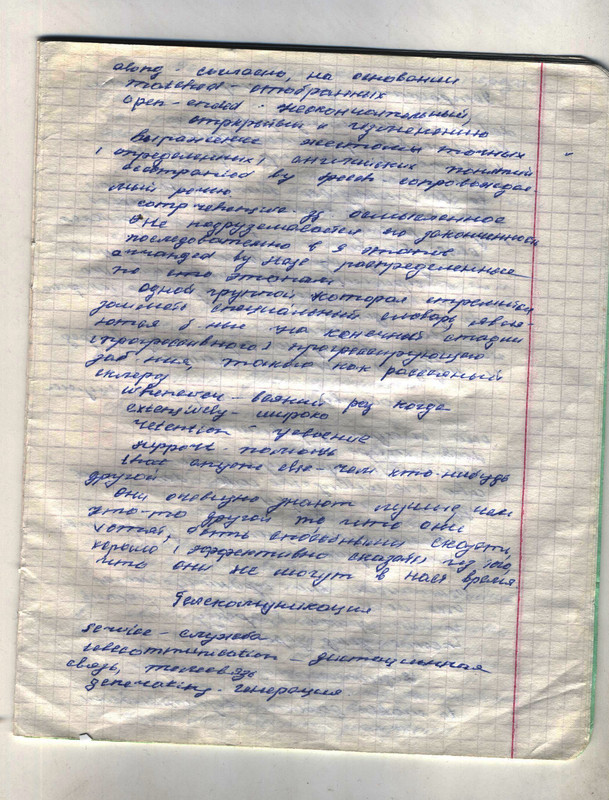 along - согласно, на основании
matched - отобранных
open-ended - неокончательный,
открытый к изменению
выражение жестами точных
(определенных) английских понятий
accompanied by speech - сопровождае-
мый речью
осмысленное
не подразумевается его законченность
последовательно в 9 этапов
arranged by stage - распределенные
по этапам
одной группой, которая стремится
специальный словарь, явля-
ются б-ные на конечной стадии
(прогрессивного) прогрессирующего
заб-ния, такого как рассеяный
склероз
whenever - всякий раз когда
extensively - широко
retention - усвоение
support - помощь
that anyone else - чем кто-нибудь
другой
они очевидно знают лучше чем
кто-то другой то что они
хотят, быть способными сказать,
хорошо (эффективно сказать) из того,
что они не могут в наст время
Телекоммуникация
service - служба
telecommunication - дистанционная
связь, телесвязь
generating - генерация